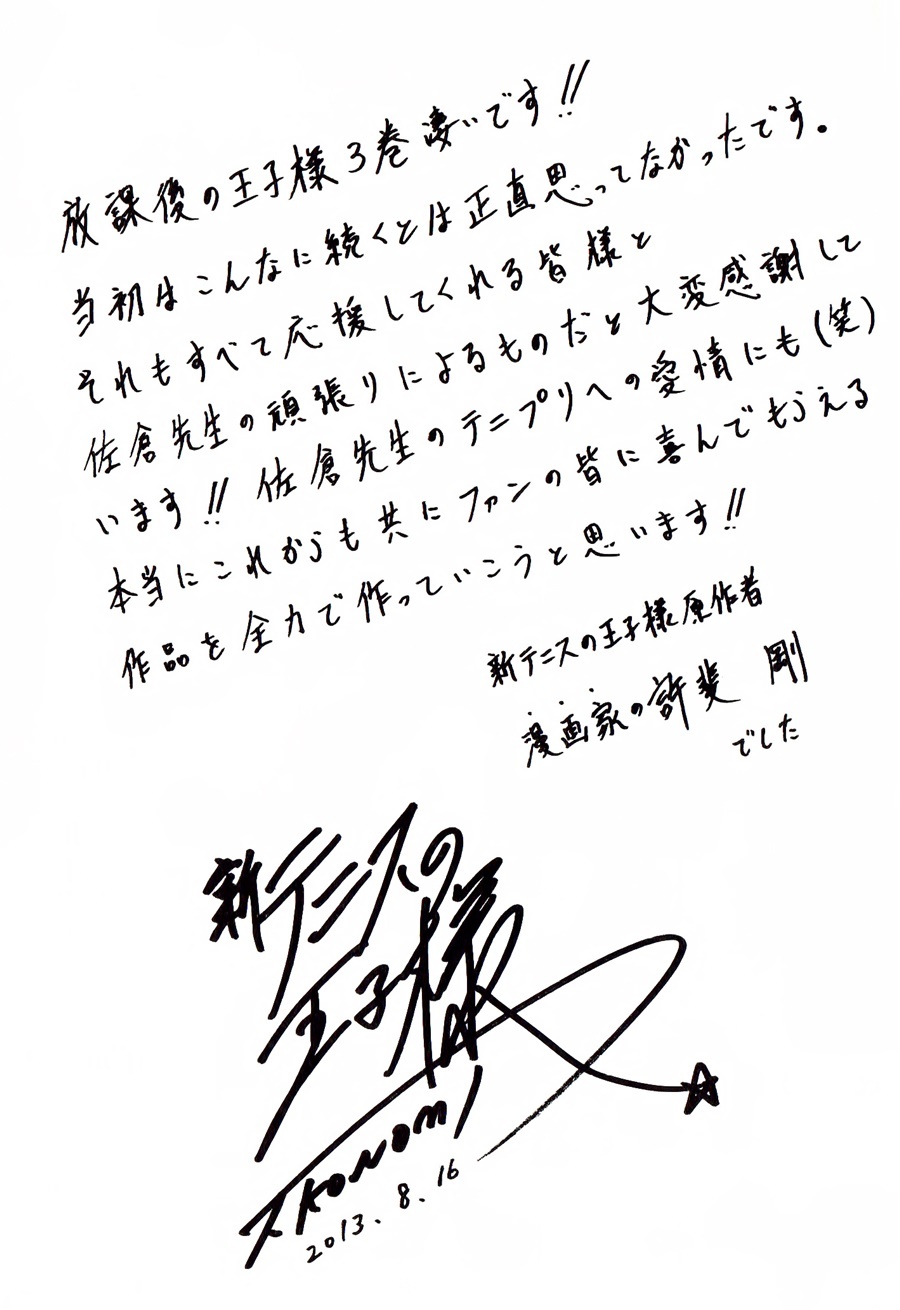 放課後の王子様3巻凄いです!!
当初はこんなに続くとは正直思ってなかったです。
それもすべて応援してくれる皆様と
佐倉先生の頑張りによるものだと大変感謝して
います!! 佐倉先生のテニプリへの愛情にも(笑)
本当にこれからも共にファンの皆に喜んでもらえる
作品を全力で作っていこうと思います!!
新テニスの王子様原作者
漫画家の許斐 剛
でした
新テニスの
王子様
T.KONOMI
2013.8.16